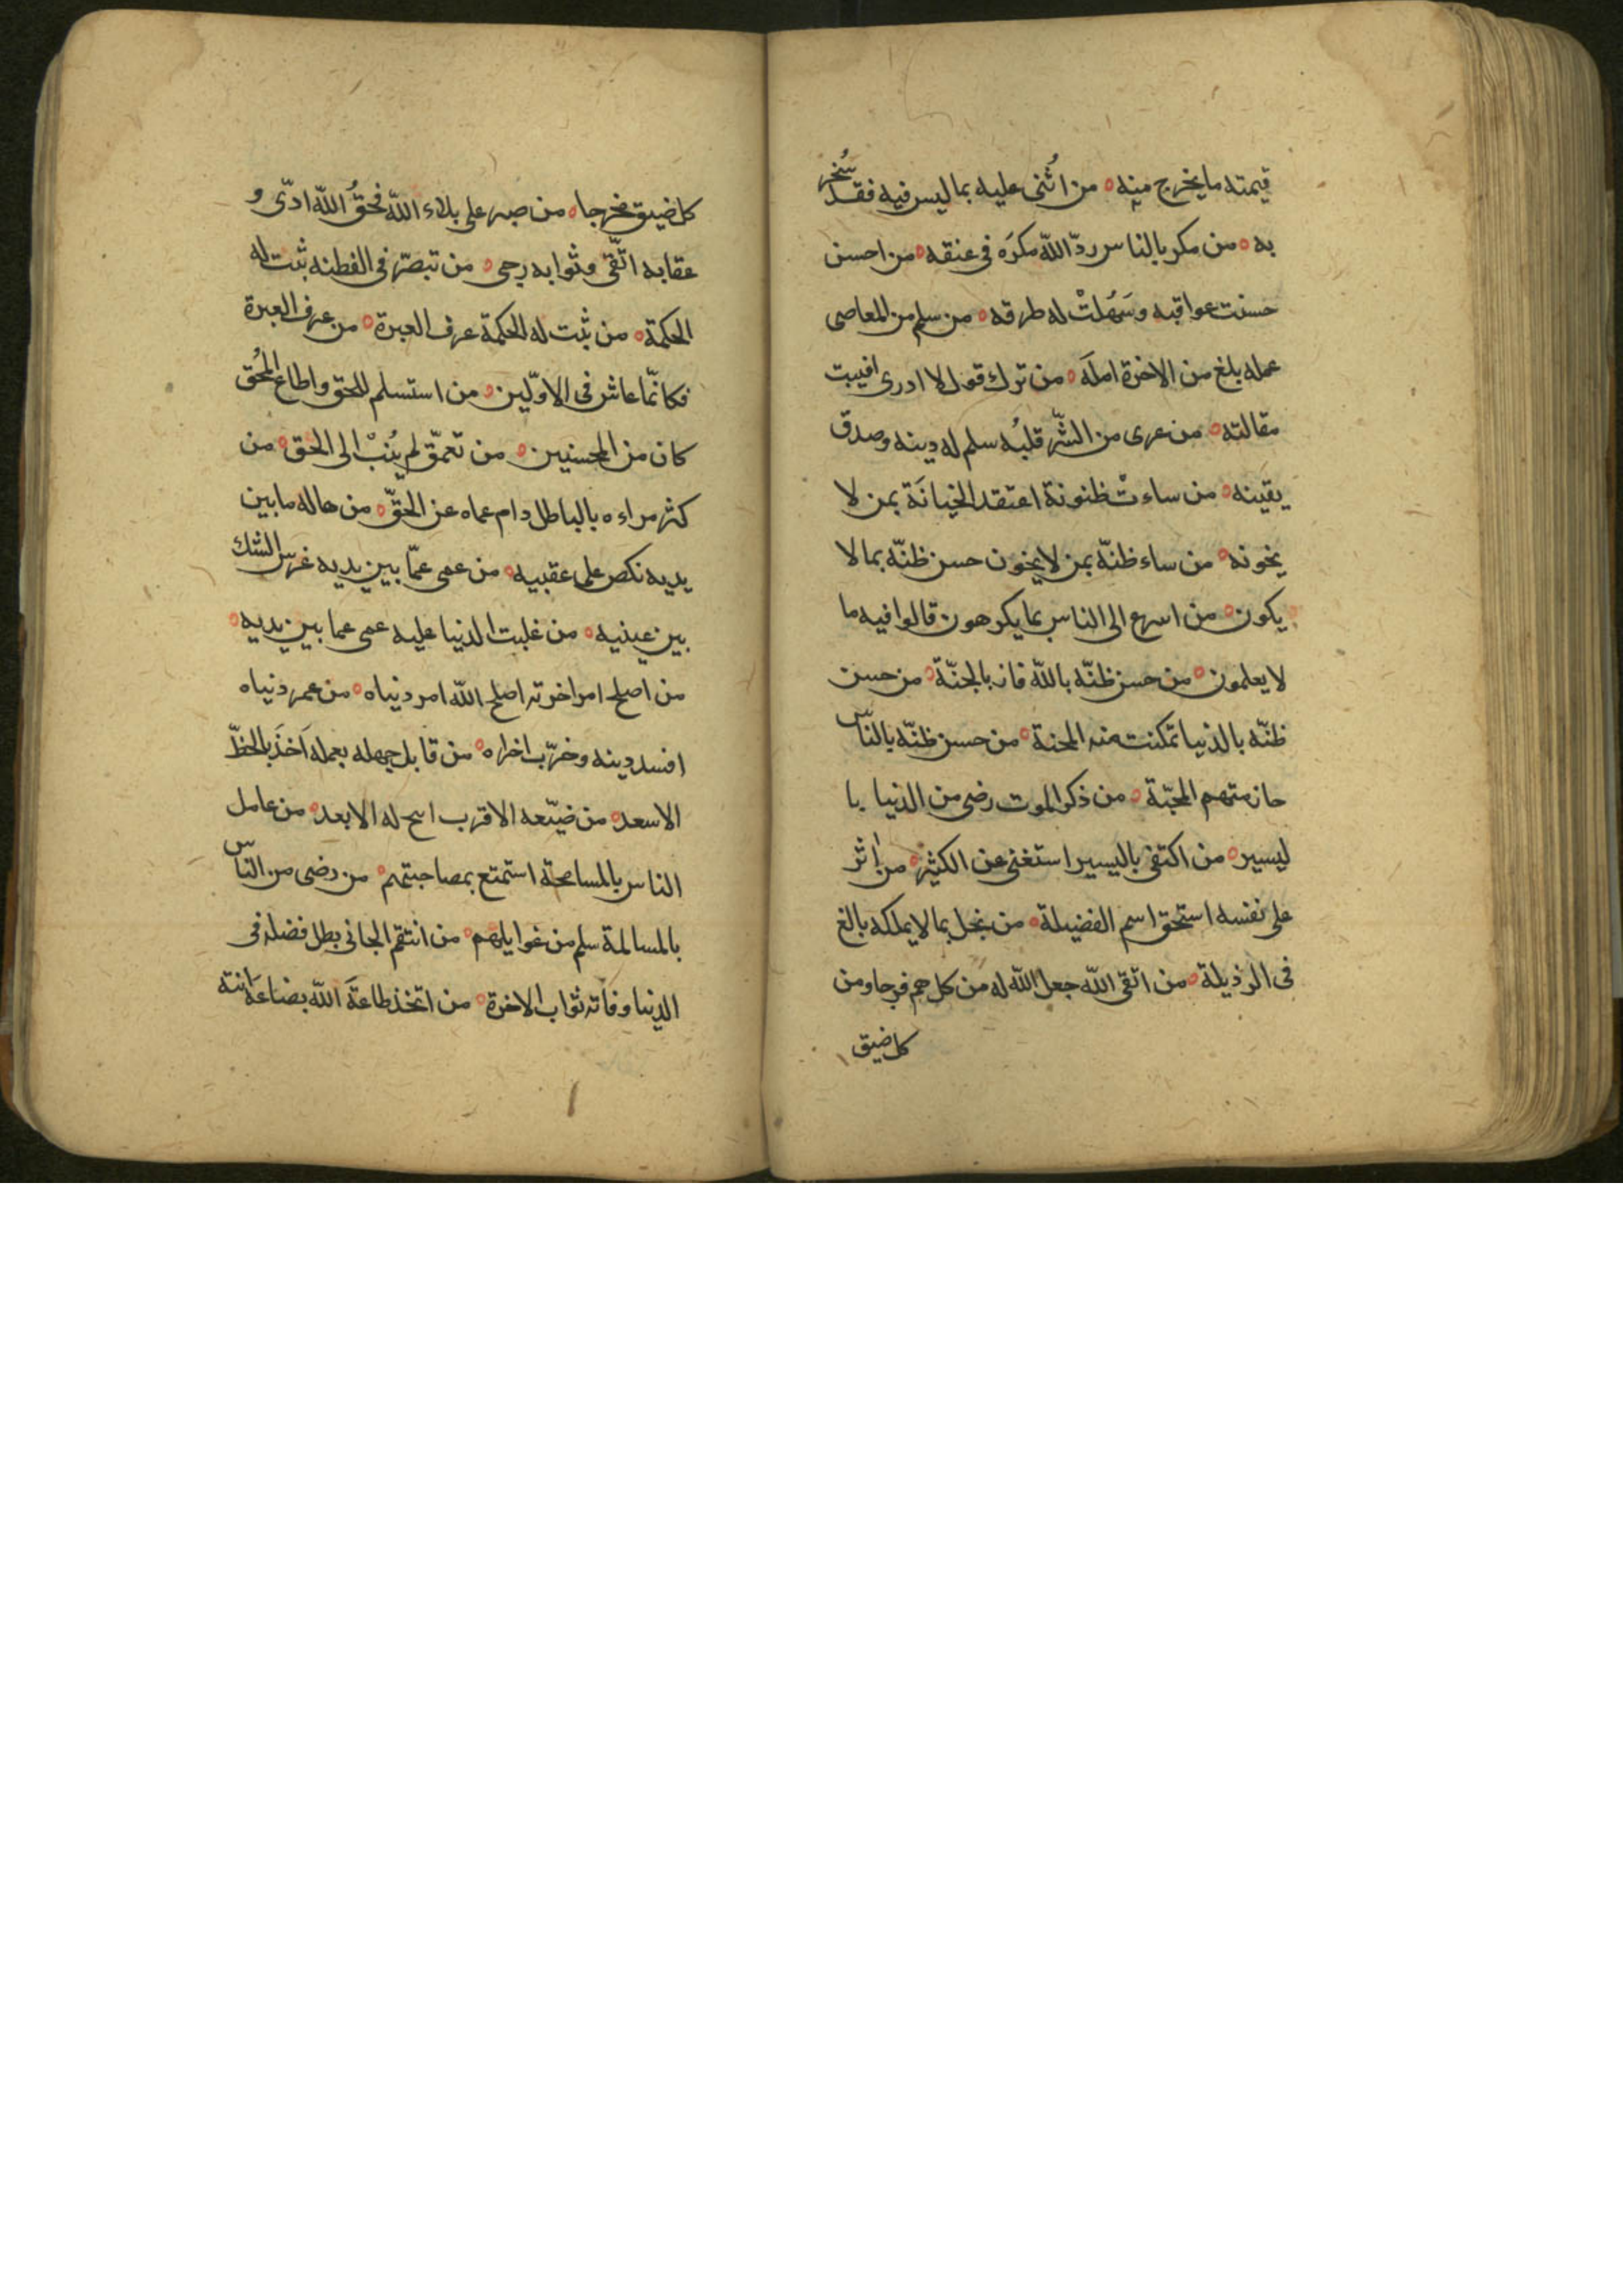 قيمته ما يخرج منه ه من اُثنى عليه بما ليس فيه فقد سُخر
به ه من مكر بالناس ردّ اللّه مكرَه فى عنقه ه من احسن
حسنت عواقبه وسَهُلتْ له طرقه ه من سلم من المعاصى
عمله بلغ من الاخرة املَه ه من ترك قول لا ادرى اصيبت
مقالته ه من عرى من الشّر قلبُه سلم له دينه وصدق
يقينه ه من ساءتْ ظنونة اعتقد الخيانَة بمن لا
يخونه ه من ساء ظنّه بمن لا يخون حسن ظنّه بما لا
يكون ه من اسرع الى الناس بما يكرهون قالوا فيه ما
لا يعلمون ه من حسن ظنّه باللّه فاز بالجنّة ه من حسن
ظنّه بالدنيا تمكنت منه المحنة ه من حسن ظنّه بالنّاس
حاز منهم المحبّة ه من ذكر الموت رضى من الدنيا با
ليسير ه من اكتفى باليسير استغنى عن الكثير ه من اٰثر
على نفسه استحق اسم الفضيلة ه من بخل بما لا يملكه بالغ
فى الرذيلة ه من اتقى اللّه جعل اللّه له من كل هم فرجا ومن
كل ضيق
كل ضيق مخرجا ه من صبر على بلاء اللّه فحقُ اللّه ادّى و
عقابه اتّقى وثوابه رجى ه من تبصّر فى الفطنه ثبت له
الحكمة ه من ثبت له الحكمة عرف العبرة ه من عرف العبرة
فكانّما عاش فى الاوّلين ه من استسلم للحق واطاع المُحق
كان من المحسنين ه من تعمّق لم يُنبْ الى الحق ه من
كثر مراءه بالباطل دام عماه عن الحقّ ه من هاله ما بين
يديه نكص على عقبيه ه من عمى عمّا بين يديه غرس الشك
بين عينيه ه من غلبت الدنيا عليه عمى عما بين يديه ه
من اصلح امر اخرته اصلح اللّه امر دنياه ه من عمر دنياه
افسد دينه وخرّب اخراه ه من قابل جهله بعمله اَخَذَ بالحظّ
الاسعد ه من ضيّعه الاقرب اسح له الابعد ه من عامل
الناس بالمسامحة استمتع بمصاحبتهم ه من رضى من النّاس
بالمسالمة سلم من غوايلهم ه من انتقم الجانى بطل فضله فى
الدنيا وفاته ثواب الاخرة ه من اتخذ طاعةَ اللّه بضاعةً اتته